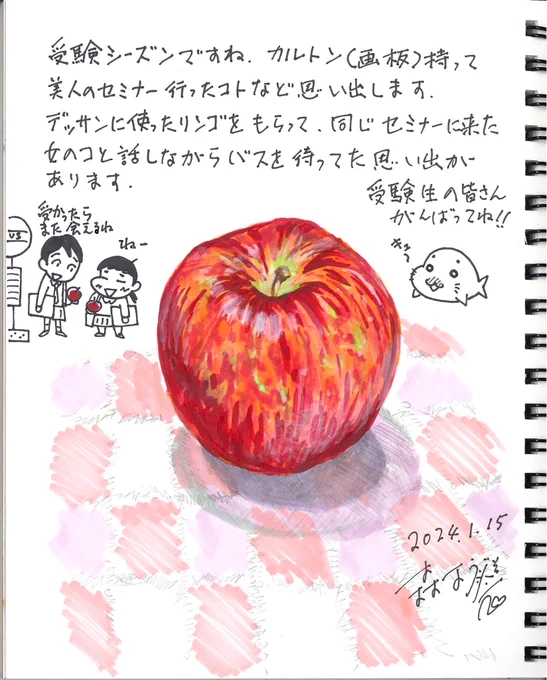 受験シーズンですね。カルトン(画板)持って
美人のセミナー行ったコトなど思い出します。
デッサンに使ったリンゴをもらって、同じセミナーに来た
女のコと話しながらバスを待ってた思い出が
あります。
受験生の皆さん
がんばってね!!
受かったら
また会えるね
ねー
キュッ
US
2024.1.15